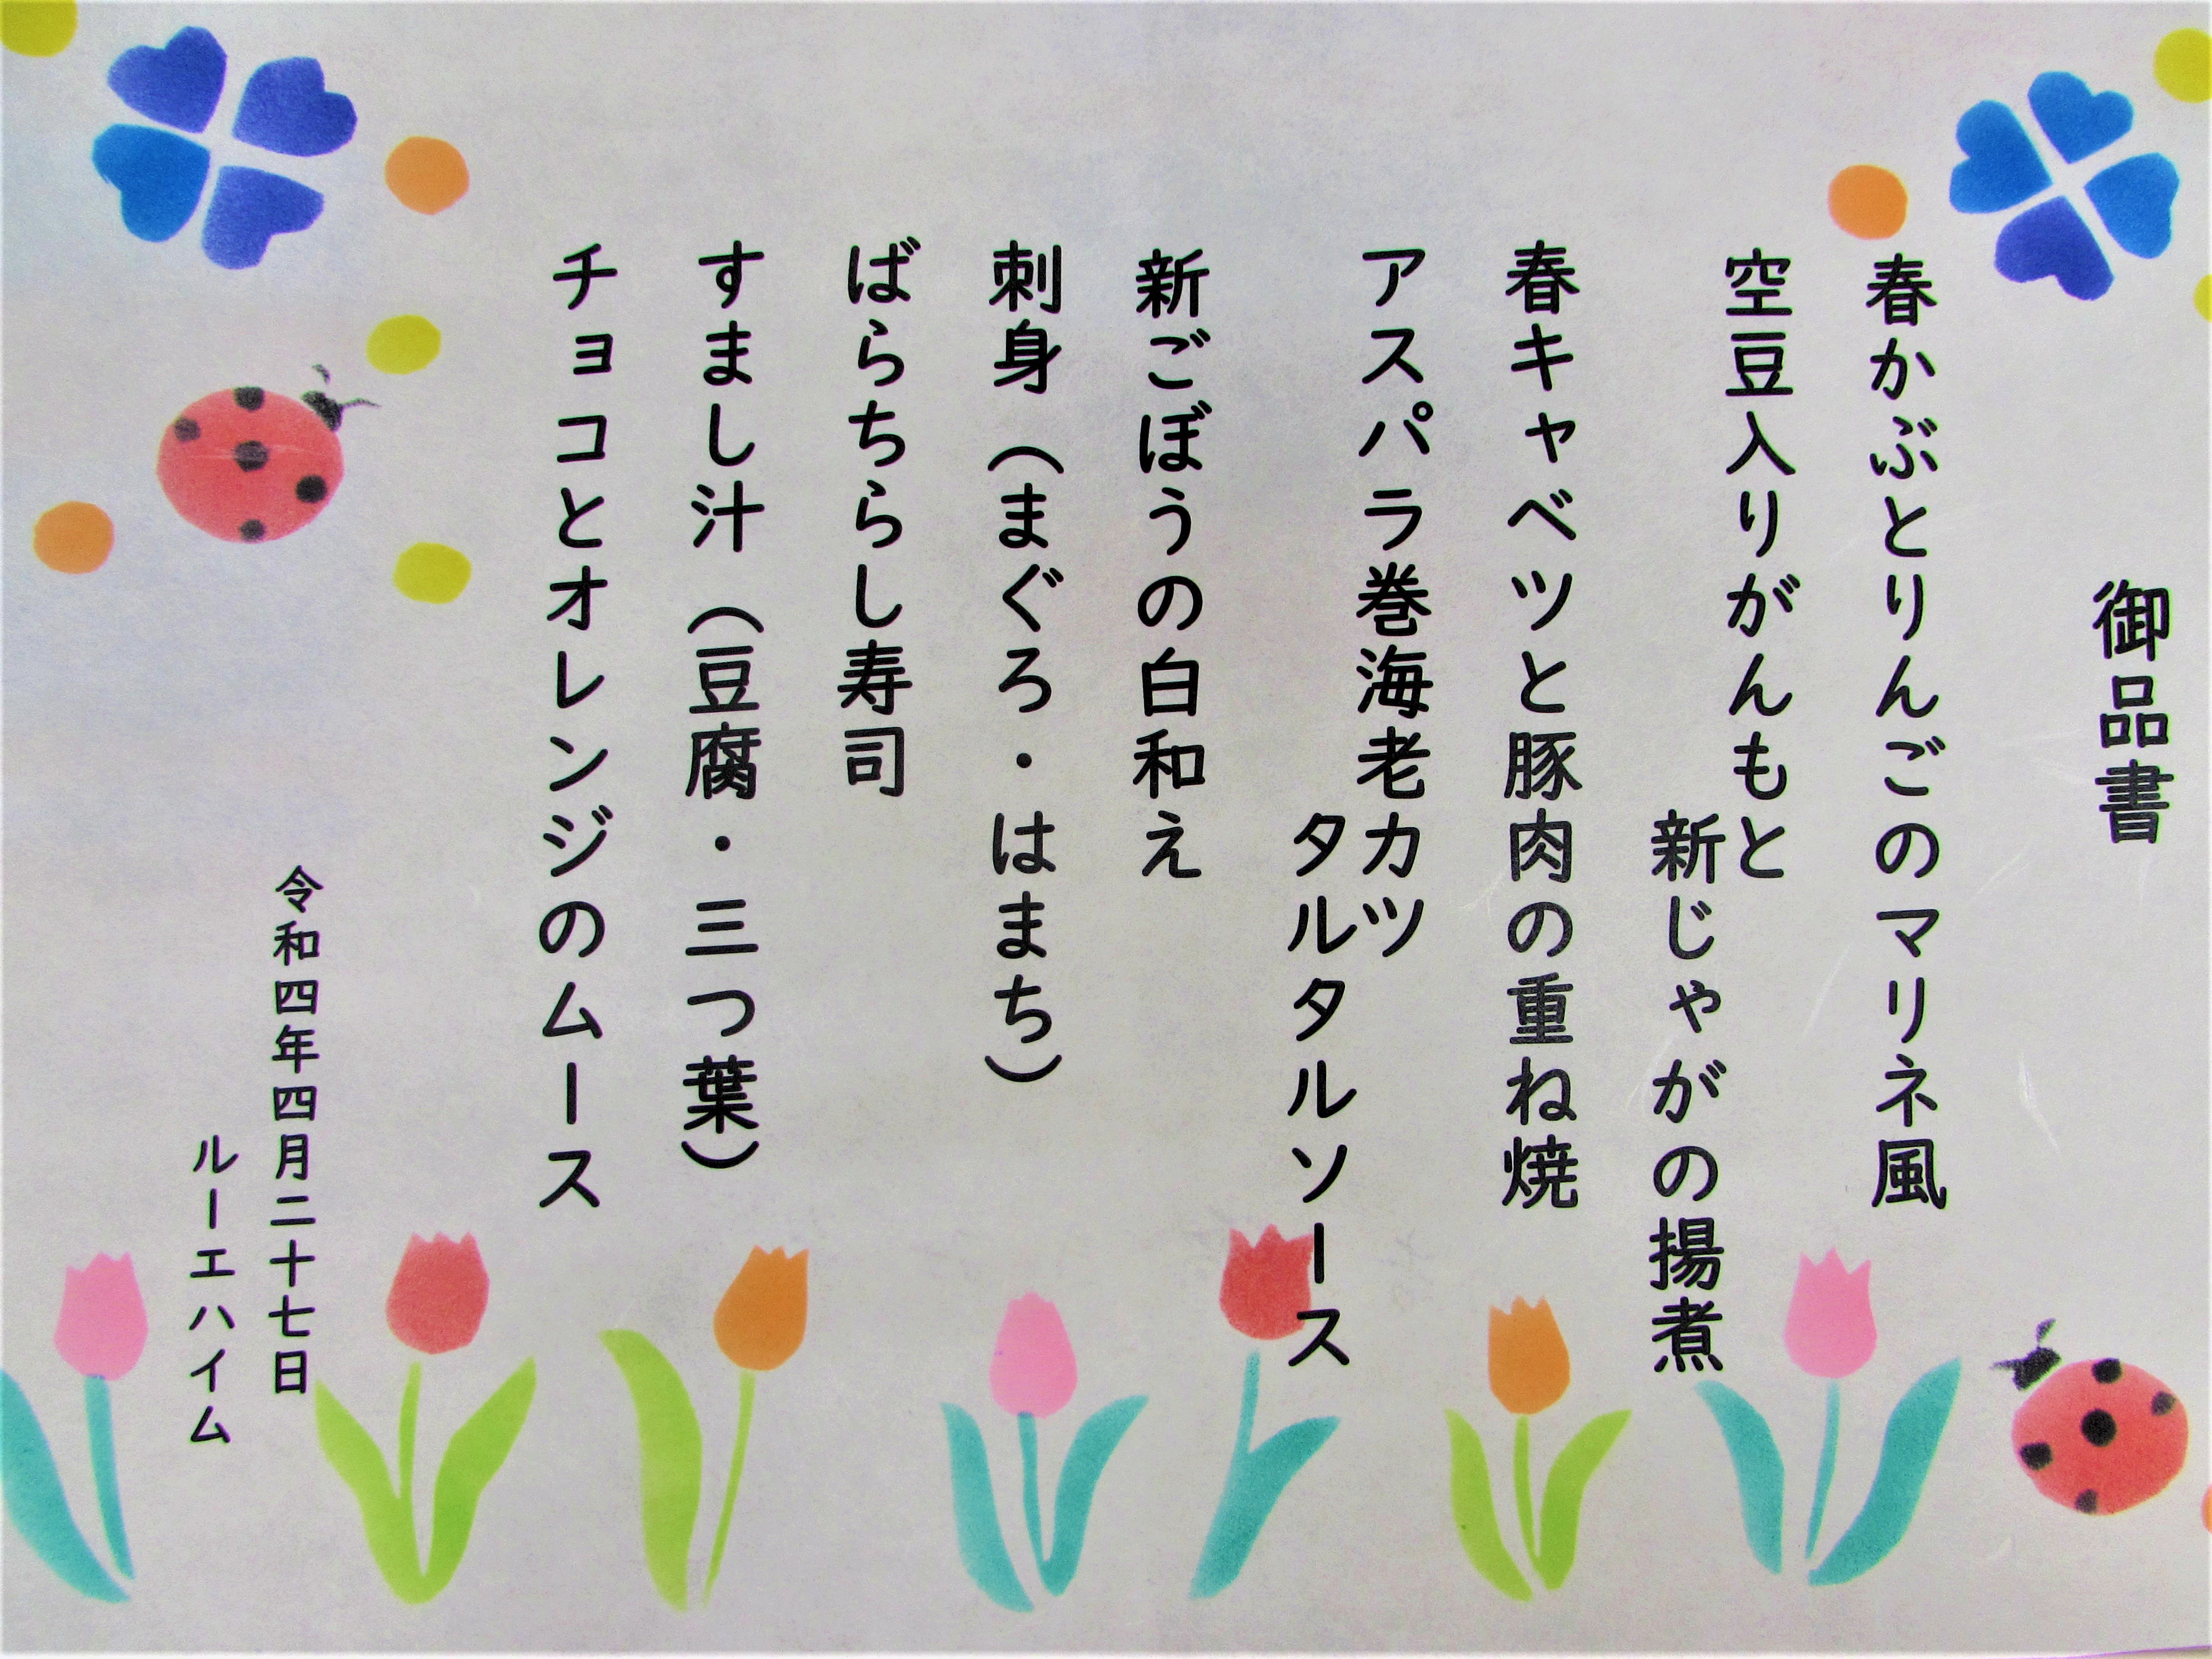 御品書
春かぶとりんごのマリネ風
空豆入りがんもと
新じゃがの揚煮
春キャベツと豚肉の重ね焼
アスパラ巻海老カツ
タルタルソース
新ごぼうの白和え
刺身（まぐろ・はまち）
ばらちらし寿司
すまし汁（豆腐・三つ葉）
チョコとオレンジのムース
令和四年四月二十七日
ルーエハイム